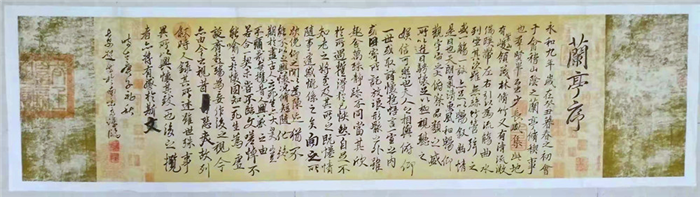 蘭亭序
永和九年歲在癸丑暮春之初會
于會稽山陰之蘭亭脩禊事
也羣賢畢至少長咸集此地
有峻領茂林脩竹又有清流激
湍暎帶左右引以為流觴曲水
列坐其次雖無絲竹管弦之
盛一觴一詠亦足以暢敘幽情
是日也天朗氣清惠風和暢仰
觀宇宙之大俯察品類之盛
所以遊目騁懷足以極視聽之
娛信可樂也夫人之相與俯仰
一世或取諸懷抱悟言一室之內
或因寄所託放浪形骸之外雖
趣舍萬殊靜躁不同當其欣
於所遇暫得於己快然自足不
知老之將至及其所之既惓情
隨事遷感慨係之矣向之所
欣俛仰之間以為陳迹猶不
能不以之興懷況脩短隨化終
期於盡古人云死生亦大矣豈
不痛哉每攬昔人興感之由
若合一契未嘗不臨文嗟悼不
能喻之於懷固知一死生為虛
誕齊彭殤為妄作後之視今
亦由今之視昔悲夫故列
敘時人錄其所述雖世殊事
異所以興懷其致一也後之攬
者亦將有感於斯文